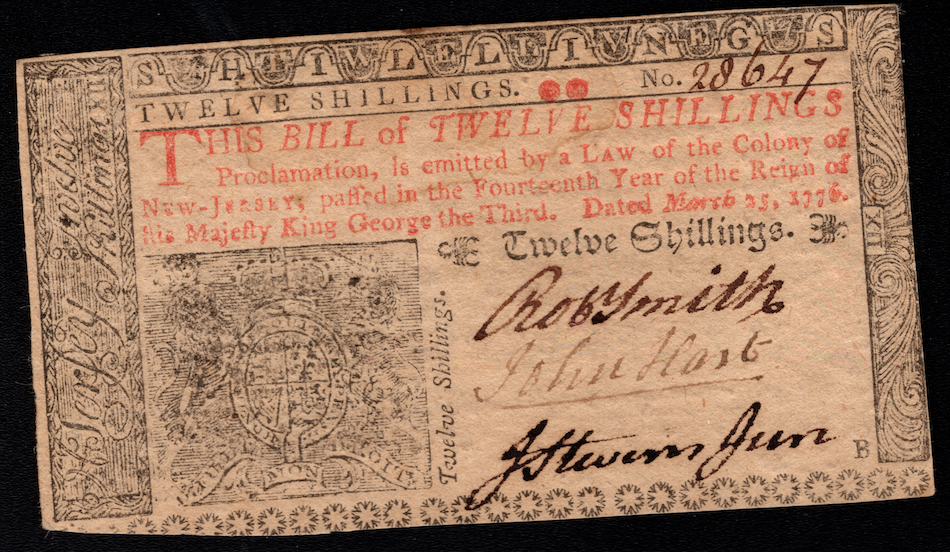 S H T I W L E L L E I V N E G S
TWELVE SHILLINGS. No. 28647
THIS BILL of TWELVE SHILLINGS
Proclamation, Is emitted by a LAW of the Colony of
NEW-JERSEY; paſſed in the Fourteenth Year of the Reign of
his Majeſty King George the Third. Dated March 25, 1776.
Twelve Shillings.
Twelve Shillings.
Robt Smith
John Hart
J Stevens Jun
B
XII
XII
Jerſey
DIEU
MON
DROIT